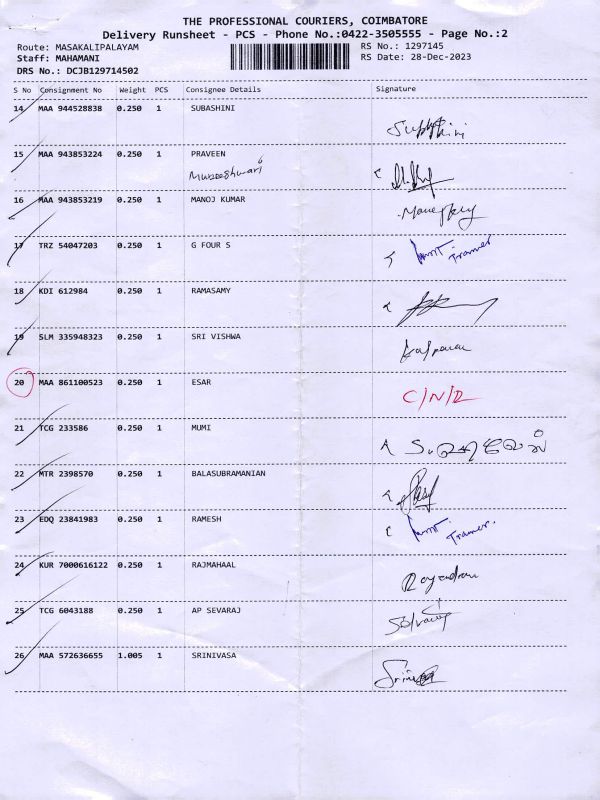 THE PROFESSIONAL COURIERS, COIMBATORE
Delivery Runsheet - PCS - Phone No.:0422-3505555 - Page No.:2
Route: MASAKALIPALAYAM RS No.: 1297145
Staff: MAHAMANI RS Date: 28-Dec-2023
DRS No.: DCJB129714502
S No Consignment No Weight PCS Consignee Details Signature
14 MAA 944528838 0.250 1 SUBASHINI
15 MAA 943853224 0.250 1 PRAVEEN
16 MAA 943853219 0.250 1 MANOJ KUMAR
17 TRZ 54047203 0.250 1 G FOUR S
18 KDI 612984 0.250 1 RAMASAMY
19 SLM 335948323 0.250 1 SRI VISHWA
Kalpana
20 MAA 861100523 0.250 1 ESAR
21 TCG 233586 0.250 1 MUMI
22 MTR 2398570 0.250 1 BALASUBRAMANIAN
23 EDQ 23841983 0.250 1 RAMESH
24 KUR 7000616122 0.250 1 RAJMAHAAL
Rajendran
25 TCG 6043188 0.250 1 AP SEVARAJ
26 MAA 572636655 1.005 1 SRINIVASA